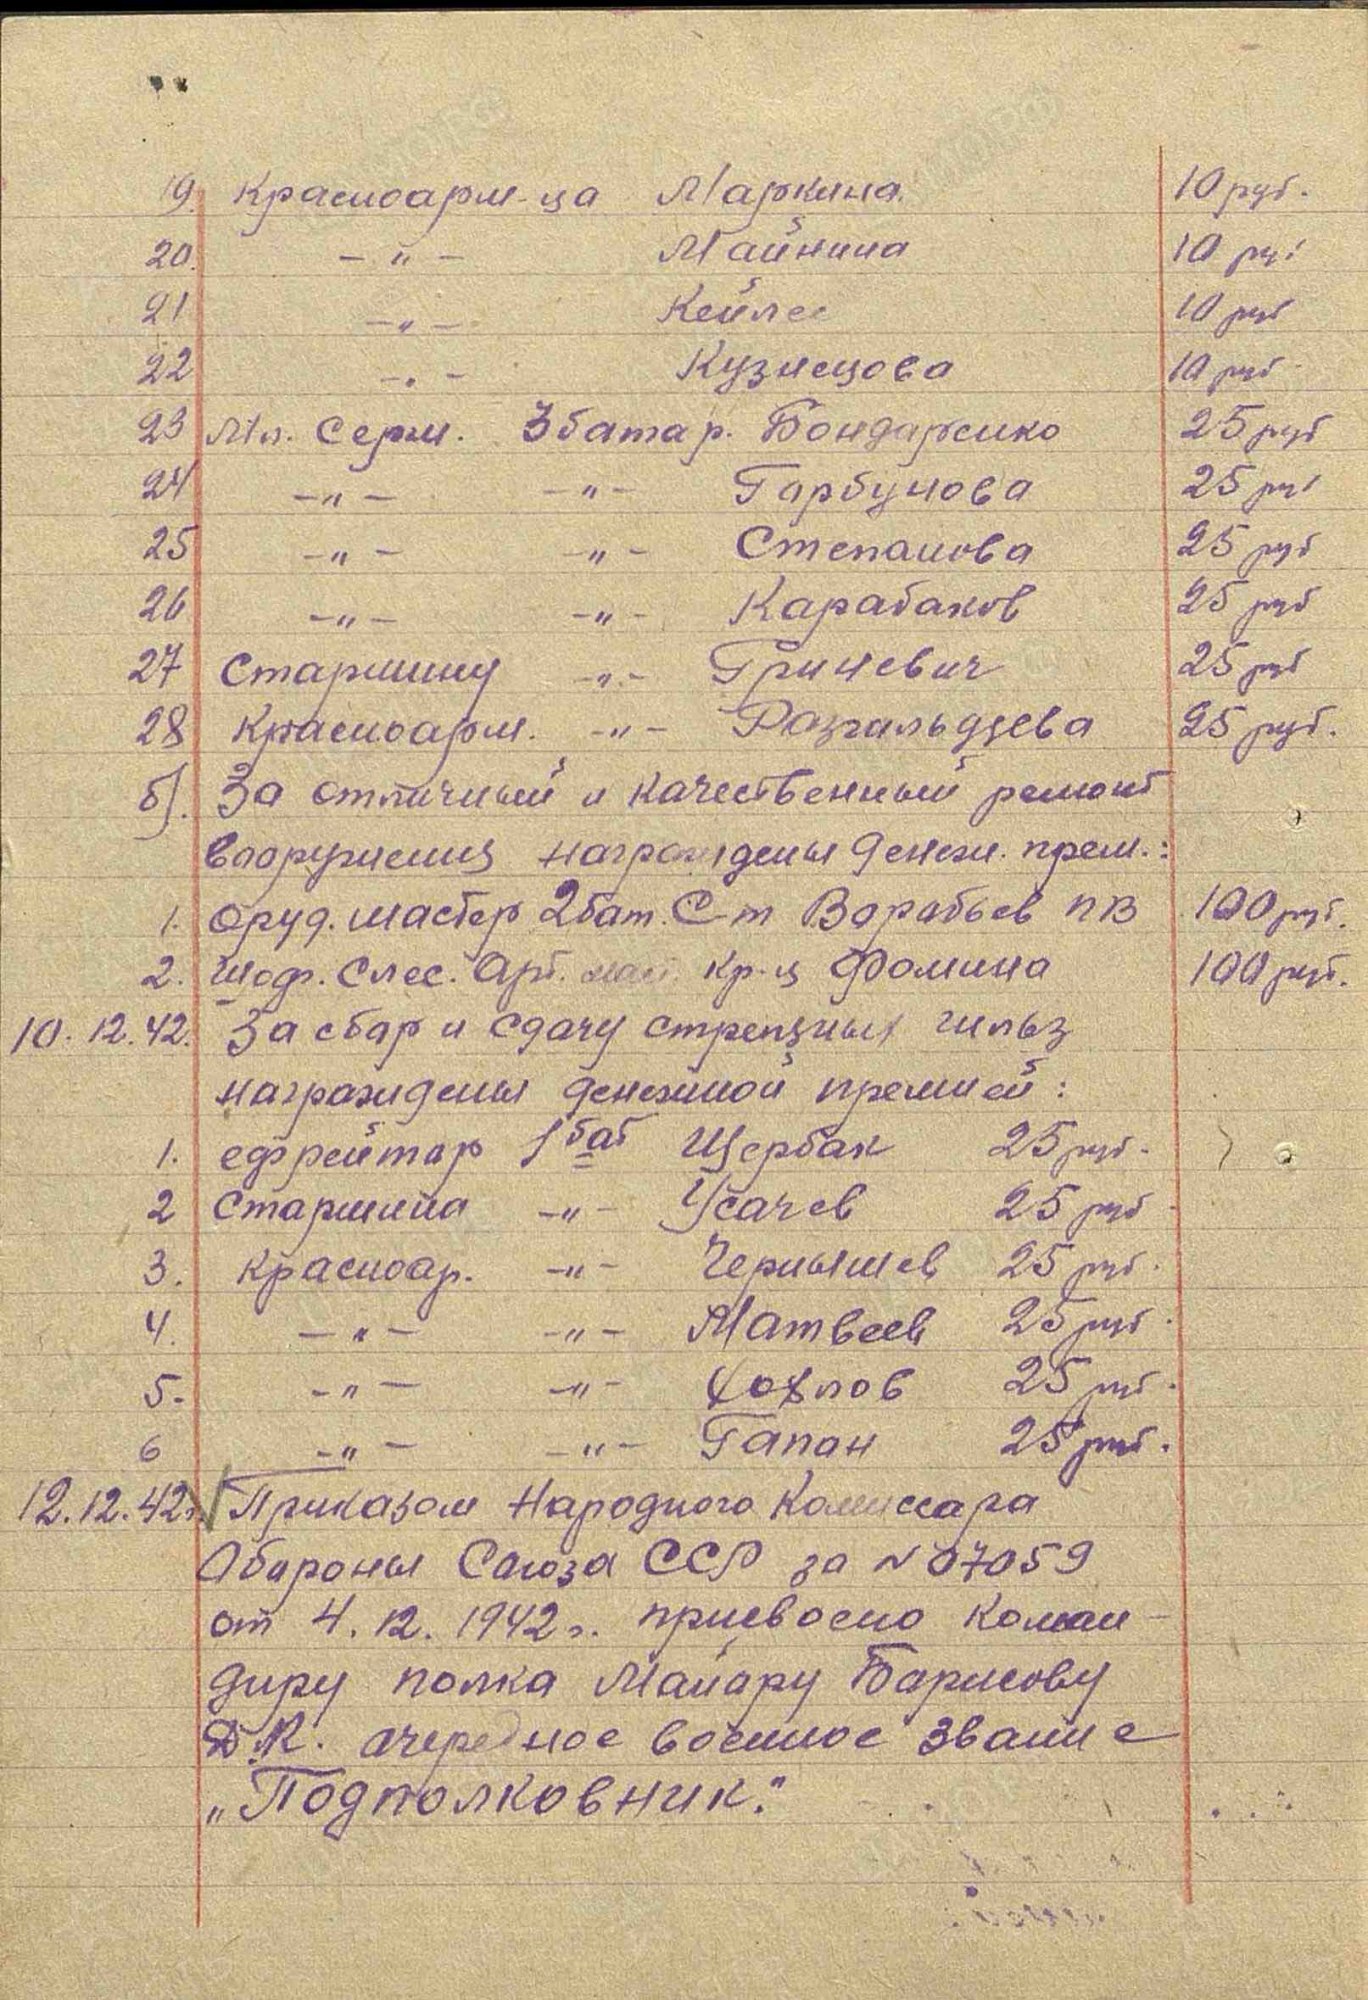 19. Красноарм-ца Маркина. 10 руб.
20. —"— Майнина 10 руб
21 —"— Кейлес 10 руб
22 —"— Кузнецова 10 руб
23 Мл. Серж. 3 батар. Бондаренко 25 руб
24 —"— —"— Горбунова 25 руб
25 —"— —"— Степанова 25 руб
26 —"— —"— Карабанов 25 руб
27 Старшину —"— Гриневич 25 руб
28 Красноарм. —"— 25 руб.
б). За отличный и качественный ремонт
вооружения награждены денежн. прем.:
1. Оруд. мастер 2 бат. С-т Воробьев ПВ 100 руб.
2. Шоф. Слес. Арт. кр-ц Фомина 100 руб.
10. 12. 42. За сбор и сдачу стрелянных гильз
награждены денежной премией:
1. ефрейтор 1 бат Щербак 25 руб.
2 Старшина —"— Усачев 25 руб
3. Красноар. —"— Чернышев 25 руб.
4. —"— —"— Матвеев 25 руб.
5. —"— —"— Хохлов 25 руб.
6 —"— —"— Гапон 25 руб.
12.12.42г. Приказом Народного Комиссара
Обороны Союза ССР за N 07059
от 4. 12. 1942 г. присвоено коман-
диру полка Майору Борисову
Д.К. очередное военное звание
„Подполковник."